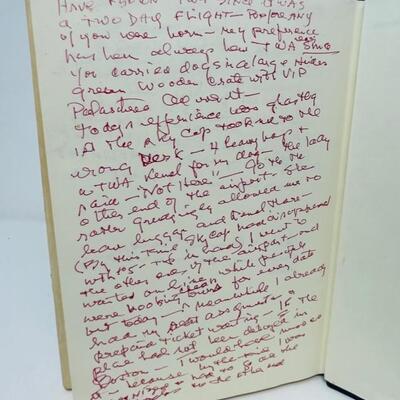 HAVE FLOWN TWA SINCE IT WAS
a TWO DAY FLIGHT - BEFORE ANY
of you were born - my preference
has been always been TWA since
you carried dogs in a large
green wooden crate with VIP
Today's experience was ghastly
1) The sky cap took me to the
wrong Desk - 4 heavy bags &
a TWA kennel for my dog - The lady
said - "Not Here" - Go to the
other end of the airport - She
rather grudgingly allowed me to
leave luggage and kennel there -
(By this time Sky Cap had disappeared
with $5 - tip in hand) I went to
the other end of the airport - and
waited on line while people
were booking for every date
but today - meanwhile I already
had my seat assignment &
prepaid ticket waiting - If the
plane had not been delayed in
Boston - I would have missed
it - because by the time I was
had to go all the
to the other end